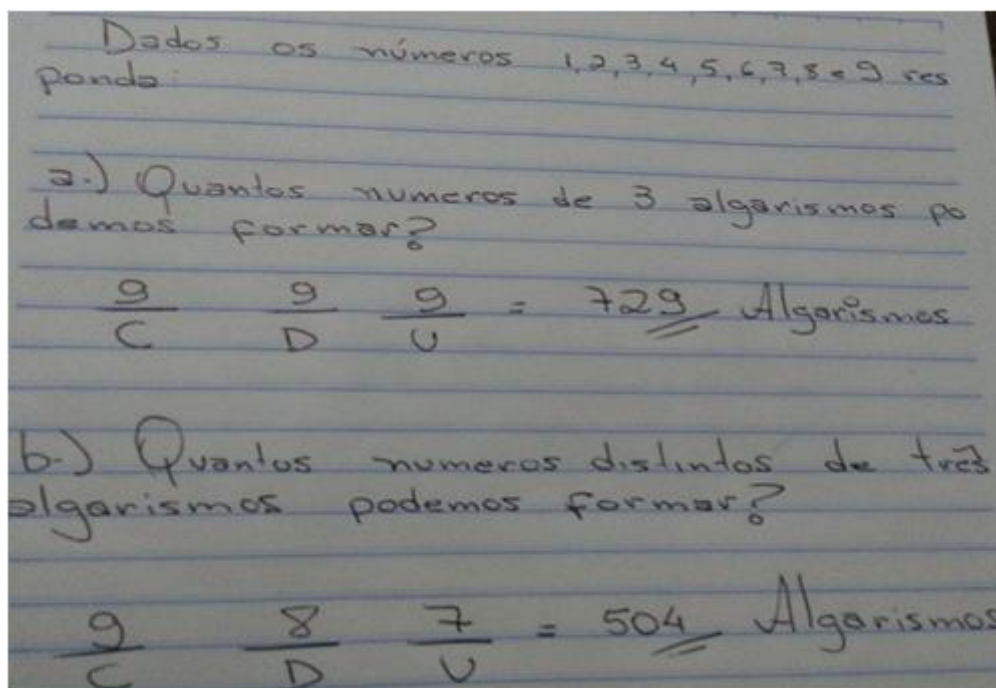 Dados os números 1, 2, 3, 4, 5, 6, 7, 8 e 9 res
ponda:
a.) Quantos numeros de 3 algarismos po
demos formar?
9 9 9 = 729 Algarismos
C D U
b.) Quantos numeros distintos de três
algarismos podemos formar?
9 8 7 = 504 Algarismos
C D U